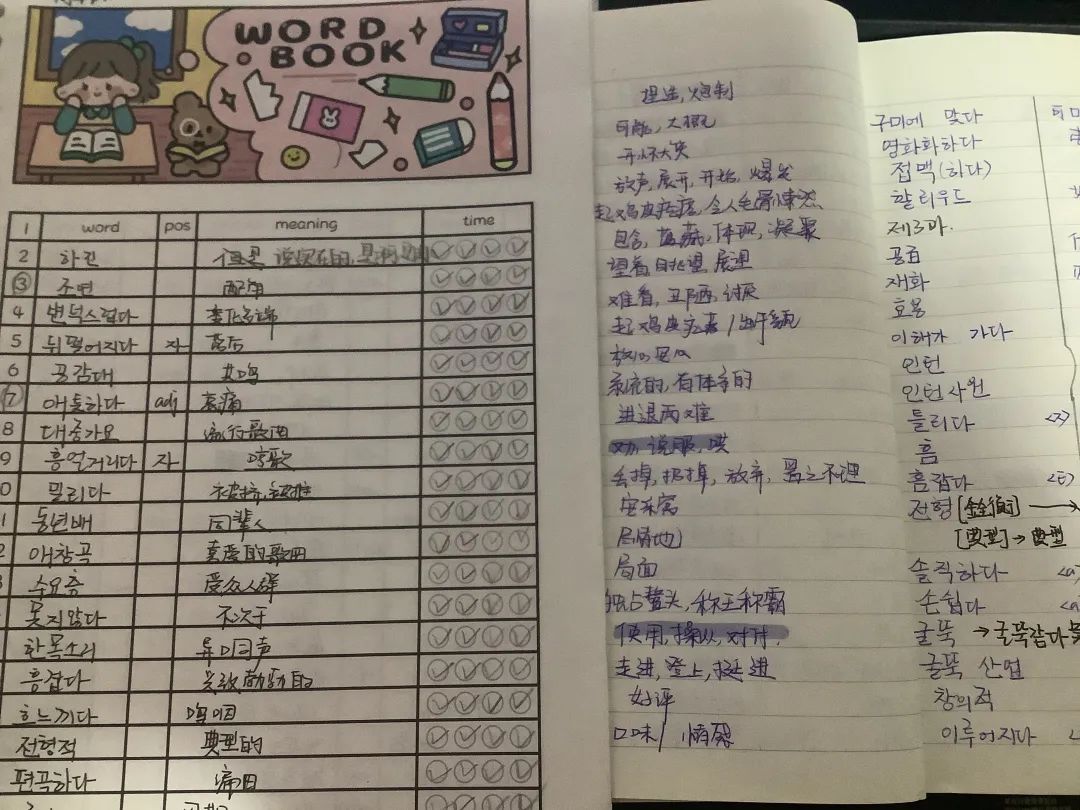 WORD
BOOK
1 word pos meaning time
2 하긴 但是 说实在的,
③ 조연 配角
4 변덕스럽다 变化多端
5 뒤떨어지다 자 落后
6 공감대 共鸣
⑦ 애통하다 adj 哀痛
8 대중가요 流行歌曲
9 흥얼거리다 자 哼歌
0 밀리다 被挤, 被推
1 동년배 同辈人
2 애창곡 喜爱的歌曲
수요층 受众人群
못지않다 不次于
한목소리 异口同声
흥겹다
흐느끼다 呜咽
전형적 典型的
편곡하다 编曲
捏造, 炮制
可能, 大概
开怀大笑
放声, 展开, 开始, 爆发
起鸡皮疙瘩, 令人毛骨悚然
包含, 蕴藏, 体现, 凝聚
望着 眺望 展望
难看, 丑陋, 讨厌
起鸡皮疙瘩 /
系统的, 有体系的
进退两难
劝, 说服, 哄
丢掉, 扔掉, 放弃, 置之不理
安乐窝
局面
独占鳌头, 称王称霸
使用, 操纵, 对付
走进, 登上, 挺进
好评
口味
구미에 맞다
영화화하다
접맥(하다)
할리우드
제3과.
공급
재화
효용
이해가 가다
인턴
인턴사원
틀리다 <자>
흠
흠잡다 <타>
전형 [銓衡] →
[典型] → 典型
솔직하다 <a
손쉽다 <a
굴뚝 → 굴뚝같다
굴뚝 산업
창의적
이루어지다